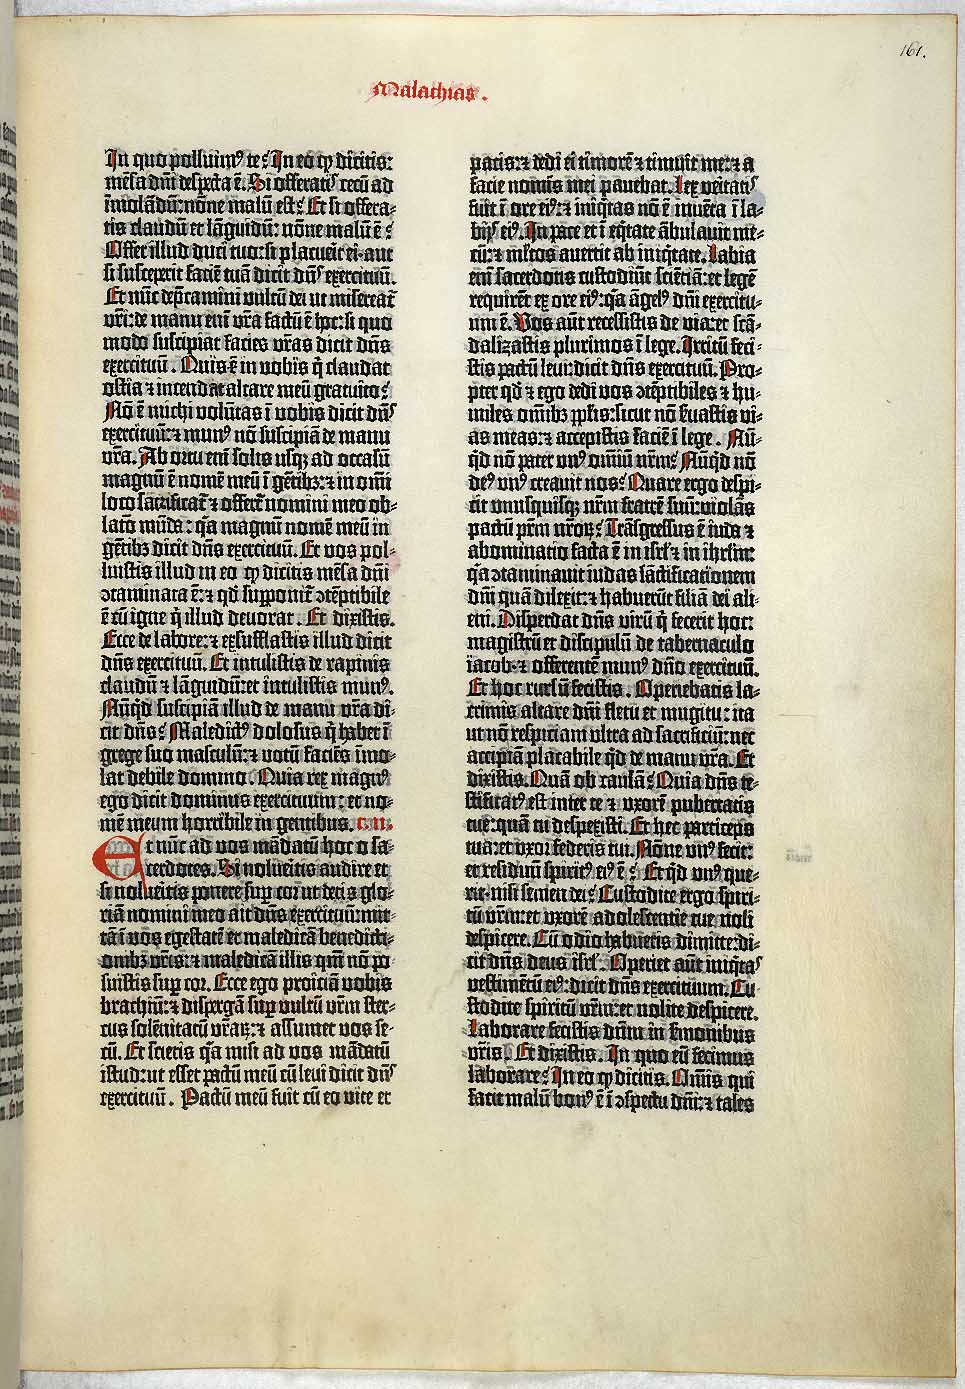 161.
Malachias.
In quo polluim⁹ te? In eo ꝙ dicitis:
mēsa dn̄i despecta ē. Si offeratꝭ cecū ad
īmolādū: nōne malū est? Et si offera-
tis claudū et lāguidū: nōne malū ē?
Offer illud duci tuo: si placuerit ei · aut
si susceperit faciē tuā dicit dn̄s exercituū.
Et nūc dep̄camini vultū dei ut misereat̄
vr̄i: de manu enī vr̄a factū ē hoc: si quo
modo suscipiat facies vr̄as dicit dn̄s
exercituū. Quis ē in vobis q̄ claudat
ostia ⁊ incendat altare meū gratuito?
Nō ē michi volūtas ī vobis dicit dn̄s
exercituū: ⁊ mun⁹ nō suscipiā de manu
vr̄a. Ab ortu enī solis usqꝫ ad occasū
magnū ē nomē meū ī gētibꝫ: ⁊ in omī
loco sacrificat̄ ⁊ offert̄ nomini meo ob-
latō mūda: q̄a magnū nomē meū in
gētibꝫ dicit dn̄s exercituū. Et vos pol-
luistis illud in eo ꝙ dicitis mēsa dn̄i
ꝯtaminata ē: ⁊ qd̄ supponit̄ ꝯtēptibile
ē cū igne q̄ illud devorat. Et dixistis.
Ecce de labore: ⁊ exsufflastis illud dicit
dn̄s exercituū. Et intulistis de rapinis
claudū ⁊ lāguidū: et intulistis mun⁹.
Nūqd̄ suscipiā illud de manu vr̄a di-
cit dn̄s? Maledict⁹ dolosus q̄ habet ī
grege suo masculū: ⁊ votū faciēs īmo-
lat debile domino. Quia rex magn⁹
ego dicit dominus exercituum: et no-
mē meum horribile in gentibus. c. II.
Et nūc ad vos mādatū hoc o sa-
cerdotes. Si nolueritis audire et
si nolueritis ponere sup̄ cor ut detis glo-
riā nomini meo ait dn̄s exercituū: mit-
tā ī vos egestatē et maledicā benedicti-
onibꝫ vr̄is: ⁊ maledicā illis qm̄ nō po-
suistis sup̄ cor. Ecce ego proiciā vobis
brachiū: ⁊ dispergā sup̄ vultū vr̄m ster-
cus solēnitatū vr̄aꝝ: ⁊ assumet vos se-
cū. Et scietis q̄a misi ad vos mādatū
istud: ut esset pactū meū cū levi dicit dn̄s
exercituū. Pactū meū fuit cū eo vite et
pacis: ⁊ dedi ei timorē ⁊ timuit me: ⁊ a
facie nomīs mei pavebat. Lex veritatꝭ
fuit ī ore ei⁹: ⁊ iniq̄tas nō ē inuēta ī la-
bijs ei⁹. In pace et ī eq̄tate ābulavit me-
cū: ⁊ ml̄tos avertit ab iniq̄tate. Labia
enī sacerdotis custodiūt sciētiā: et legē
requirēt ex ore ei⁹: q̄a āgel⁹ dn̄i exercitu-
um ē. Vos aūt recessistis de via: et scā-
dalizastis plurimos ī lege. Irritū feci-
stis pactū levi: dicit dn̄s exercituū. Pro-
pter qd̄ ⁊ ego dedi vos ꝯtēptibiles ⁊ hu-
miles omībꝫ pp̄lis: sicut nō s̄uastis vi-
as meas: ⁊ accepistis faciē ī lege. Nū-
qd̄ nō pater un⁹ omniū nr̄m? Nūqd̄ nō
de⁹ un⁹ creavit nos? Quare ergo despi-
cit unusquisqꝫ nr̄m fratrē suū: violās
pactū prm̄ nr̄oꝝ? Trāsgressus ē iuda ⁊
abominatio facta ē in isrl̄ ⁊ in ihrl̄m:
q̄a ꝯtaminavit iudas sāctificationem
dn̄i quā dilexit: ⁊ habuerūt filiā dei ali-
eni. Disperdat dn̄s virū q̄ fecerit hoc:
magistrū et discipulū de tabernaculo
iacob · ⁊ offerentē mun⁹ dn̄o exercituū.
Et hoc rursū fecistis. Operiebatis la-
crimis altare dn̄i fletu et mugitu: ita
ut nō respiciam ultra ad sacrificiū: nec
accipiā placabile qd̄ de manu vr̄a. Et
dixistis. Quā ob causā? Quia dn̄s te-
stificat⁹ est inter te ⁊ uxorē pubertatis
tue: quā tu despexisti. Et hec particeps
tua: et uxor federis tui. Nōne un⁹ fecit:
et residuū spirit⁹ ei⁹ ē? Et qd̄ un⁹ que-
rit · nisi semen dei? Custodite ergo spiri-
tū vr̄m: et uxorē adolescentie tue noli
despicere. Cū odio habueris dimitte: di-
cit dn̄s deus isrl̄. Operiet aūt iniq̄tas
vestimētū ei⁹: dicit dn̄s exercituum. Cu-
stodite spiritū vr̄m: et nolite despicere.
Laborare fecistis dn̄m in s̄monibus
vr̄is. Et dixistis. In quo eū fecimus
laborare? In eo ꝙ dicitis. Om̄is qui
facit malū bon⁹ ē ī ꝯspectu dn̄i: ⁊ tales